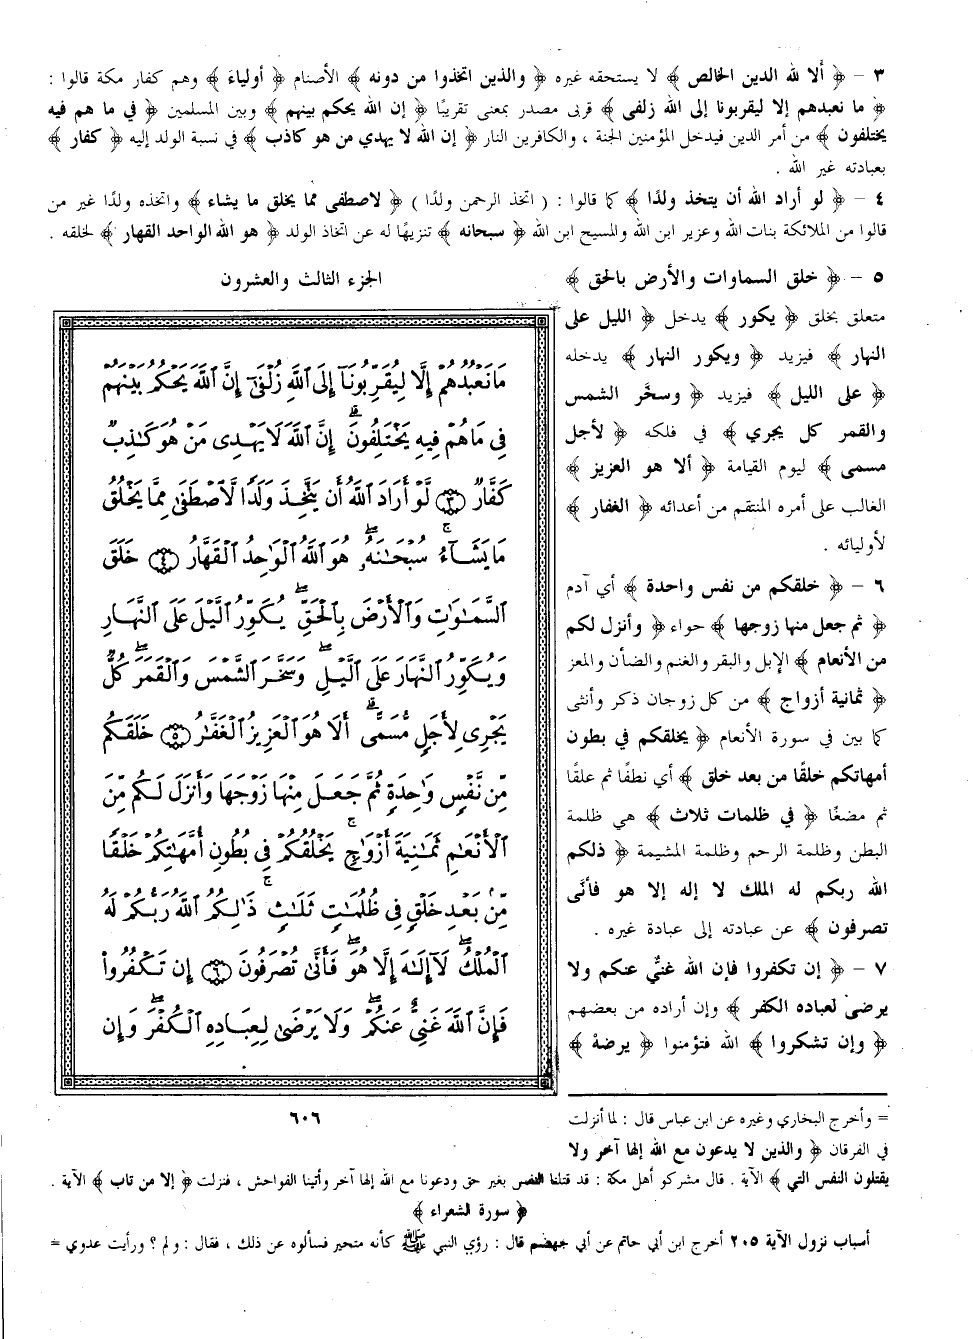 ٣ – ﴿ ألا لله الدين الخالص ﴾ لا يستحقه غيره ﴿ والذين اتخذوا من دونه ﴾ الأصنام ﴿ أولياء ﴾ وهم كفار مكة قالوا :
﴿ ما نعبدهم إلا ليقربونا إلى الله زلفى ﴾ قربى مصدر بمعنى تقريبًا ﴿ إن الله يحكم بينهم ﴾ وبين المسلمين ﴿ في ما هم فيه
يختلفون ﴾ من أمر الدين فيدخل المؤمنين الجنة ، والكافرين النار ﴿ إن الله لا يهدي من هو كاذب ﴾ في نسبة الولد إليه ﴿ كفار ﴾
بعبادته غير الله .
٤ – ﴿ لو أراد الله أن يتخذ ولدًا ﴾ كما قالوا : ( اتخذ الرحمن ولدًا ) ﴿ لاصطفى مما يخلق ما يشاء ﴾ واتخذه ولدًا غير من
قالوا من الملائكة بنات الله وعزير ابن الله والمسيح ابن الله ﴿ سبحانه ﴾ تنزيهًا له عن اتخاذ الولد ﴿ هو الله الواحد القهار ﴾ لخلقه .
٥ – ﴿ خلق السماوات والأرض بالحق ﴾
متعلق بخلق ﴿ يكور ﴾ يدخل ﴿ الليل على
النهار ﴾ فيزيد ﴿ ويكور النهار ﴾ يدخله
﴿ على الليل ﴾ فيزيد ﴿ وسخَّر الشمس
والقمر كل يجري ﴾ في فلكه ﴿ لأجل
مسمى ﴾ ليوم القيامة ﴿ ألا هو العزيز ﴾
الغالب على أمره المنتقم من أعدائه ﴿ الغفار ﴾
لأوليائه .
٦ – ﴿ خلقكم من نفس واحدة ﴾ أي آدم
﴿ ثم جعل منها زوجها ﴾ حواء ﴿ وأنزل لكم
من الأنعام ﴾ الإبل والبقر والغنم والضأن والمعز
﴿ ثمانية أزواج ﴾ من كل زوجان ذكر وأنثى
كما بين في سورة الأنعام ﴿ يخلقكم في بطون
أمهاتكم خلقًا من بعد خلق ﴾ أي نطفًا ثم علقًا
ثم مضغًا ﴿ في ظلمات ثلاث ﴾ هي ظلمة
البطن وظلمة الرحم وظلمة المشيمة ﴿ ذلكم
الله ربكم له الملك لا إله إلا هو فأنَّى
تصرفون ﴾ عن عبادته إلى عبادة غيره .
٧ – ﴿ إن تكفروا فإن الله غنيٌّ عنكم ولا
يرضى لعباده الكفر ﴾ وإن أراده من بعضهم
﴿ وإن تشكروا ﴾ الله فتؤمنوا ﴿ يرضهُ ﴾
الجزء الثالث والعشرون
مَا نَعْبُدُهُمْ إِلَّا لِيُقَرِّبُونَآ إِلَى ٱللَّهِ زُلْفَىٰٓ إِنَّ ٱللَّهَ يَحْكُمُ بَيْنَهُمْ
فِى مَا هُمْ فِيهِ يَخْتَلِفُونَ ۗ إِنَّ ٱللَّهَ لَا يَهْدِى مَنْ هُوَ كَـٰذِبٌ
كَفَّارٌ ﴿٣﴾ لَّوْ أَرَادَ ٱللَّهُ أَن يَتَّخِذَ وَلَدًا لَّٱصْطَفَىٰ مِمَّا يَخْلُقُ
مَا يَشَآءُ ۚ سُبْحَـٰنَهُۥ ۖ هُوَ ٱللَّهُ ٱلْوَٰحِدُ ٱلْقَهَّارُ ﴿٤﴾ خَلَقَ
ٱلسَّمَـٰوَٰتِ وَٱلْأَرْضَ بِٱلْحَقِّ ۖ يُكَوِّرُ ٱلَّيْلَ عَلَى ٱلنَّهَارِ
وَيُكَوِّرُ ٱلنَّهَارَ عَلَى ٱلَّيْلِ ۖ وَسَخَّرَ ٱلشَّمْسَ وَٱلْقَمَرَ ۖ كُلٌّ
يَجْرِى لِأَجَلٍ مُّسَمًّى ۗ أَلَا هُوَ ٱلْعَزِيزُ ٱلْغَفَّـٰرُ ﴿٥﴾ خَلَقَكُم
مِّن نَّفْسٍ وَٰحِدَةٍ ثُمَّ جَعَلَ مِنْهَا زَوْجَهَا وَأَنزَلَ لَكُم مِّنَ
ٱلْأَنْعَـٰمِ ثَمَـٰنِيَةَ أَزْوَٰجٍ ۚ يَخْلُقُكُمْ فِى بُطُونِ أُمَّهَـٰتِكُمْ خَلْقًا
مِّنۢ بَعْدِ خَلْقٍ فِى ظُلُمَـٰتٍ ثَلَـٰثٍ ۚ ذَٰلِكُمُ ٱللَّهُ رَبُّكُمْ لَهُ
ٱلْمُلْكُ ۖ لَآ إِلَـٰهَ إِلَّا هُوَ ۖ فَأَنَّىٰ تُصْرَفُونَ ﴿٦﴾ إِن تَكْفُرُوا۟
فَإِنَّ ٱللَّهَ غَنِىٌّ عَنكُمْ ۖ وَلَا يَرْضَىٰ لِعِبَادِهِ ٱلْكُفْرَ ۖ وَإِن
٦٠٦
= وأخرج البخاري وغيره عن ابن عباس قال : لما أنزلت
في الفرقان ﴿ والذين لا يدعون مع الله إلها آخر ولا
يقتلون النفس التي ﴾ الآية . قال مشركو أهل مكة : قد قتلنا النفس بغير حق ودعونا مع الله إلها آخر وأتينا الفواحش ، فنزلت ﴿ إلا من تاب ﴾ الآية .
﴿ سورة الشعراء ﴾
أسباب نزول الآية ٢٠٥ أخرج ابن أبي حاتم عن أبي جهضم قال : رؤي النبي ﷺ كأنه متحير فسألوه عن ذلك ، فقال : ولم ؟ ورأيت عدوي =